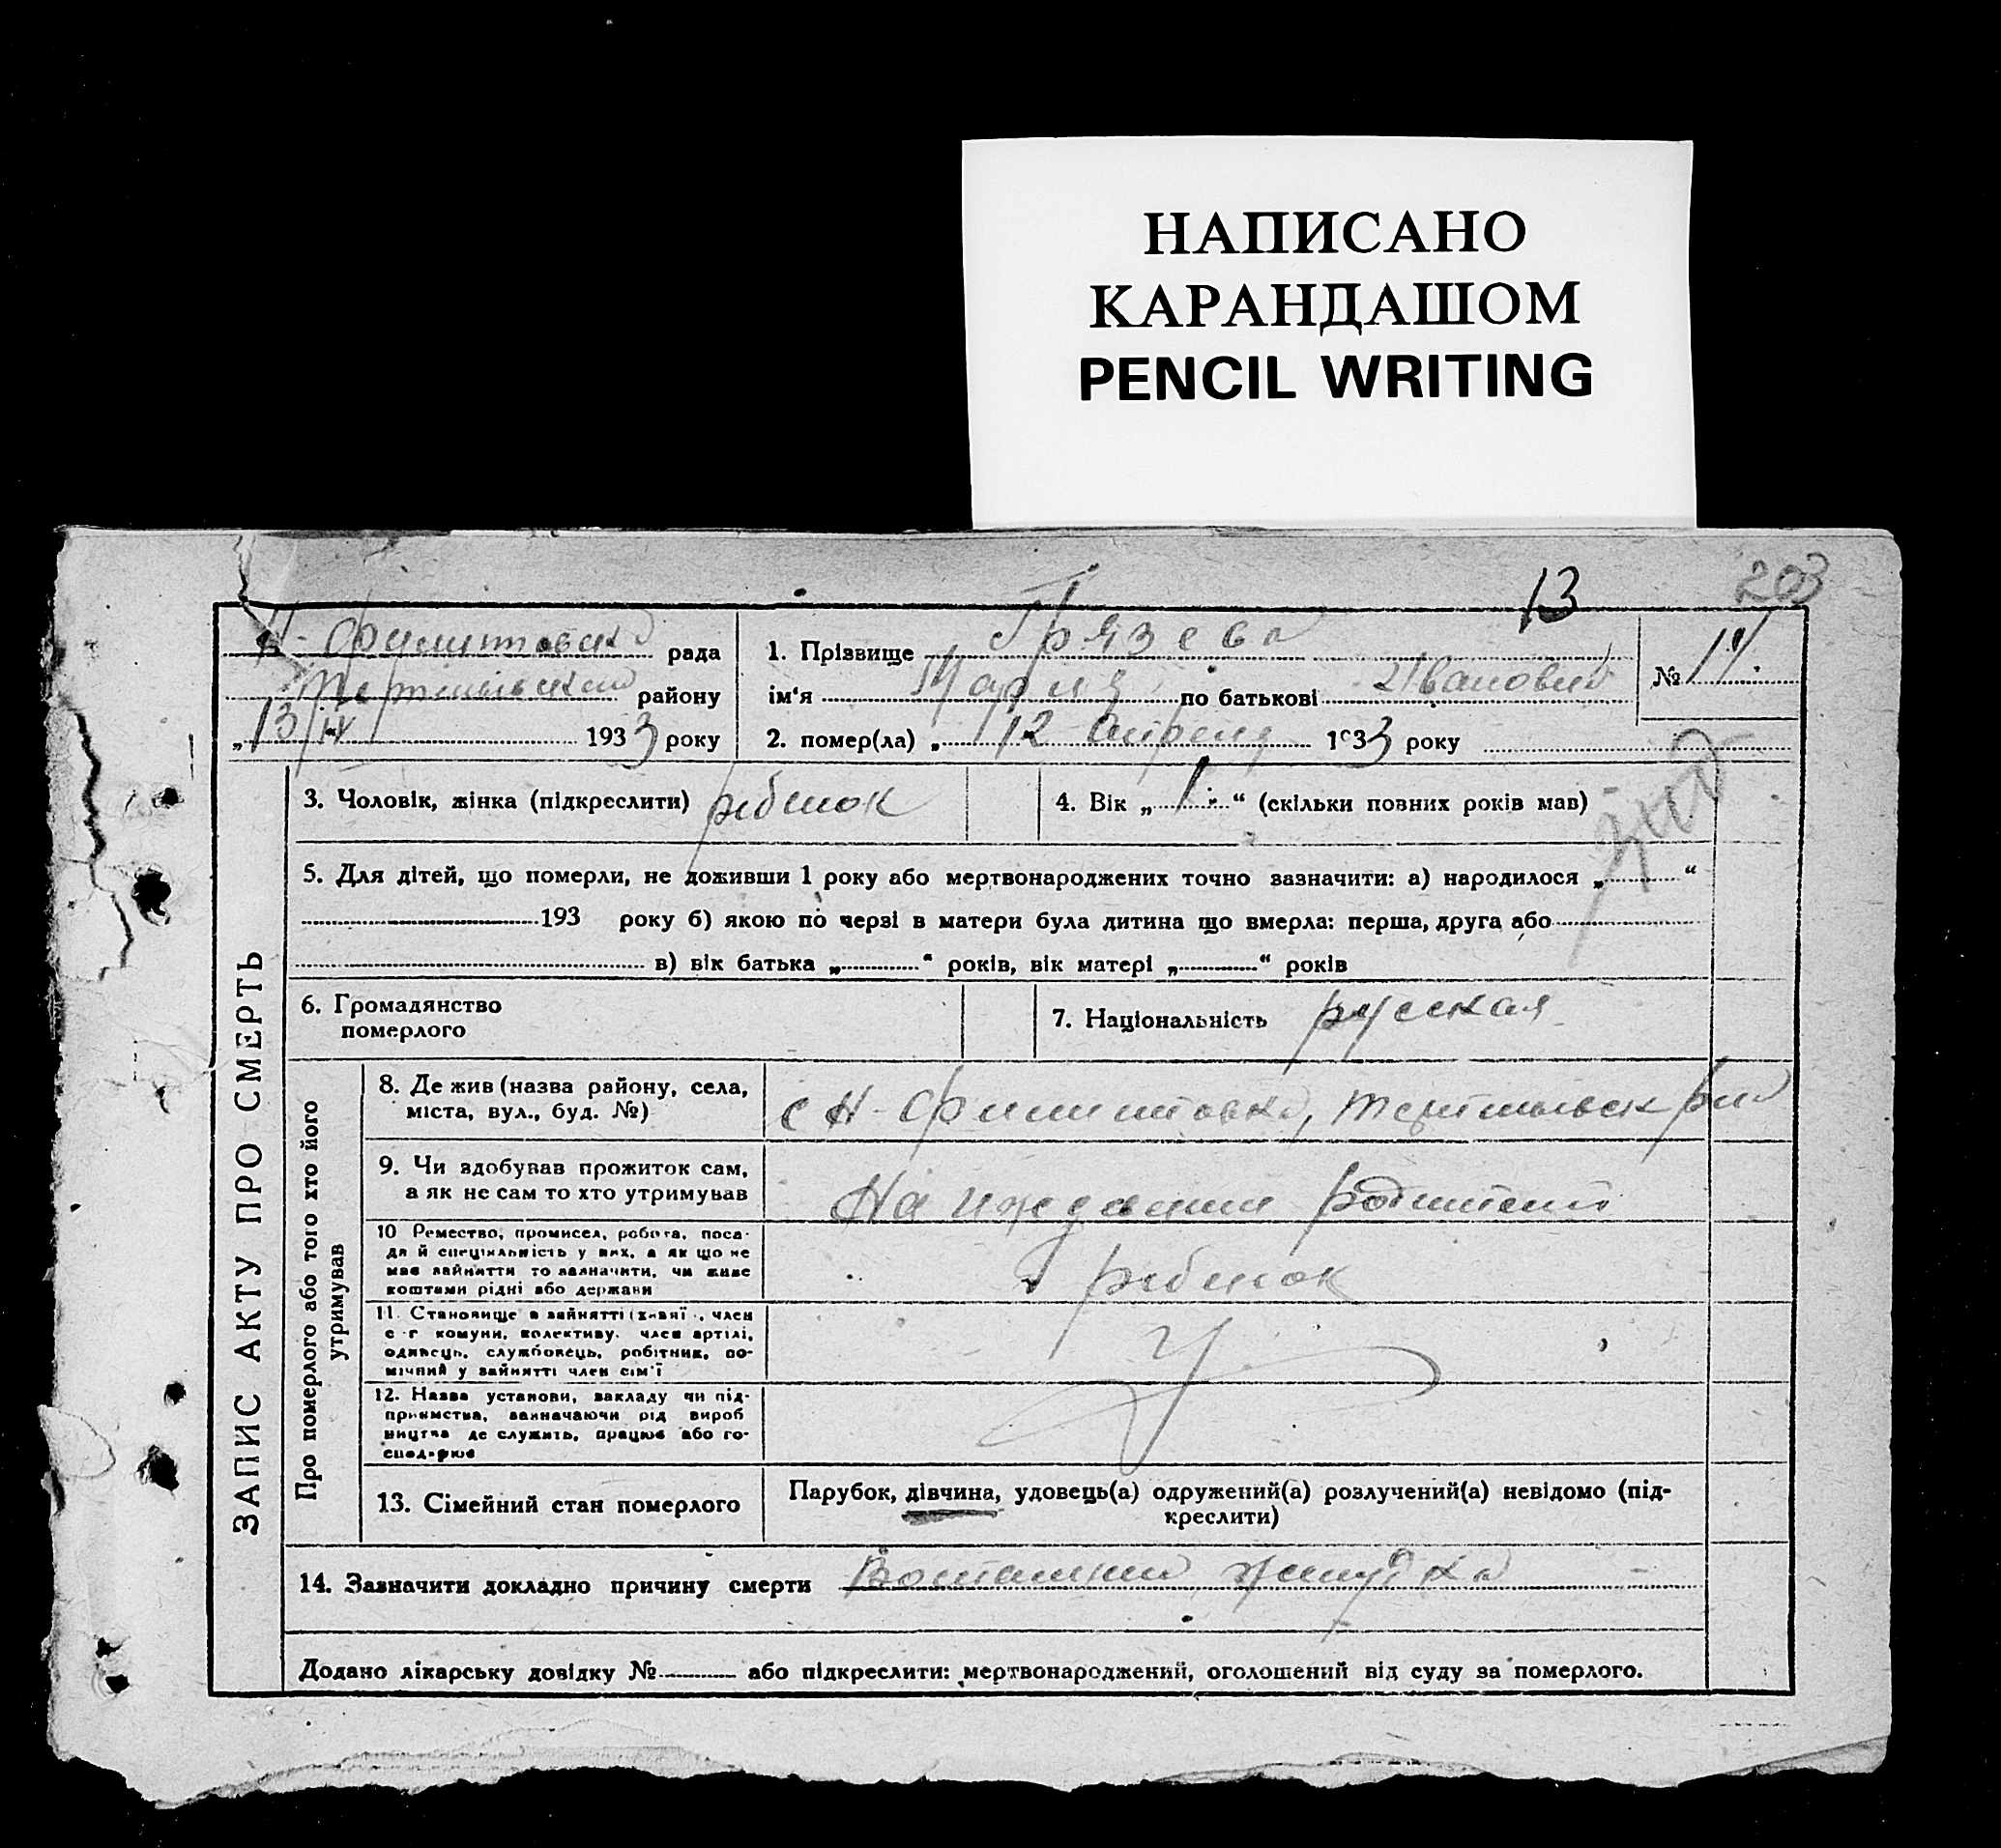 НАПИСАНО
КАРАНДАШОМ
PENCIL WRITING
13
203
рада
району
„13/IV 1933 року
1. Прізвище Грязева
ім'я Мария по батькові Ивановна
2. помер(ла) „12 апреля 1933 року
№ 14.
3. Чоловік, жінка (підкреслити) ребенок
4. Вік „1." (скільки повних років мав)
5. Для дітей, що померли, не доживши 1 року або мертвонароджених точно зазначити: а) народилося „ “
193 року б) якою по черзі в матери була дитина що вмерла: перша, друга або
в) вік батька „ “ років, вік матері „ “ років
6. Громадянство
померлого
7. Національність русская
ЗАПИС АКТУ ПРО СМЕРТЬ
Про померлого або того хто його
утримував
8. Де жив (назва району, села,
міста, вул., буд. №)
с Н-
9. Чи здобував прожиток сам,
а як не сам то хто утримував
На иждевении родителей
10 Ремество, промисел, робота, поса-
да й спеціяльність у них, а як що не
має зайняття то зазначити, чи живе
коштами рідні або держави
ребенок
11. Становище в зайнятті (хазяї, член
с-г комуни, колективу, член артілі,
одинець, службовець, робітник, по-
мічний у зайнятті член сім'ї
12. Назва установи, закладу чи під-
приємства, зазначаючи рід вироб
ництва де служить, працює або го-
сподарює
13. Сімейний стан померлого
Парубок, дівчина, удовець(а) одружений(а) розлучений(а) невідомо (під-
креслити)
14. Зазначити докладно причину смерти желудка
Додано лікарську довідку № або підкреслити: мертвонароджений, оголошений від суду за померлого.